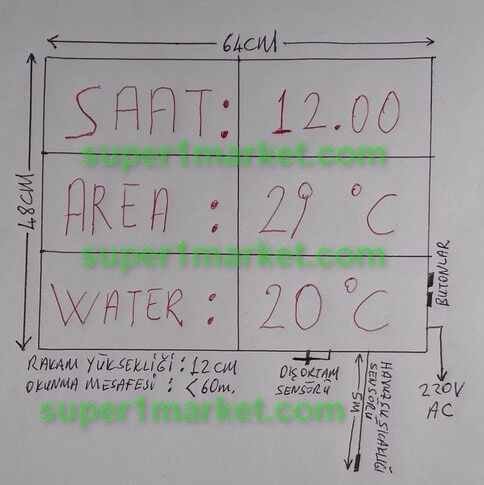 64CM
48CM
SAAT: 12.00
super1market.com
AREA : 29 °C
super1market.com
WATER : 20 °C
BUTONLAR
RAKAM YÜKSEKLİĞİ : 12CM
OKUNMA MESAFESİ : <60m.
DIŞORTAM
SENSÖRÜ
5m
HAVUZ SU SICAKLIĞI
SENSÖRÜ
220V
AC
super1market.com